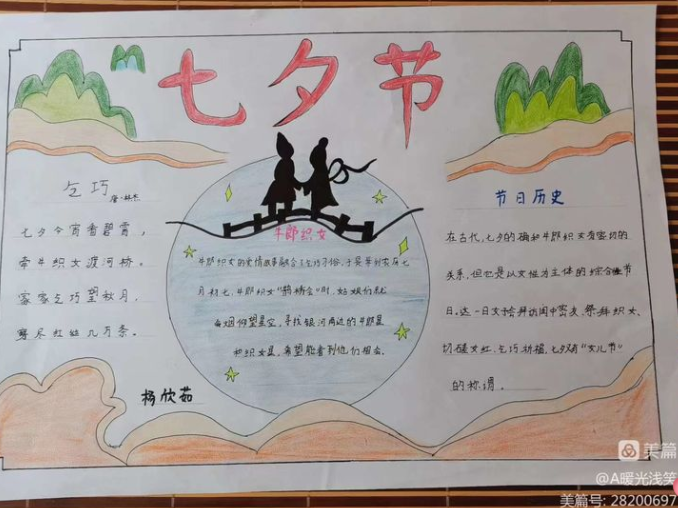 七夕节
乞巧 唐·林杰
七夕今宵看碧霄，
牵牛织女渡河桥。
家家乞巧望秋月，
穿尽红丝几万条。
杨欣茹
牛郎织女
牛郎织女的爱情故事融合了乞巧习俗，于是
月初七，牛郎织女"鹊桥会"时，姑娘们就
仰望星空，寻找银河两边的牛郎星
和织女星，希望能看到他们相会。
节日历史
在古代，七夕的确和牛郎织女有密切的
关系，但它是以女性为主体的综合性节
日。这一日女子会拜访闺中密友、祭拜织女、
切磋女红、乞巧祈福，七夕又有"女儿节"
的称谓。
美篇
@A暖光浅笑
美篇号: 28200697